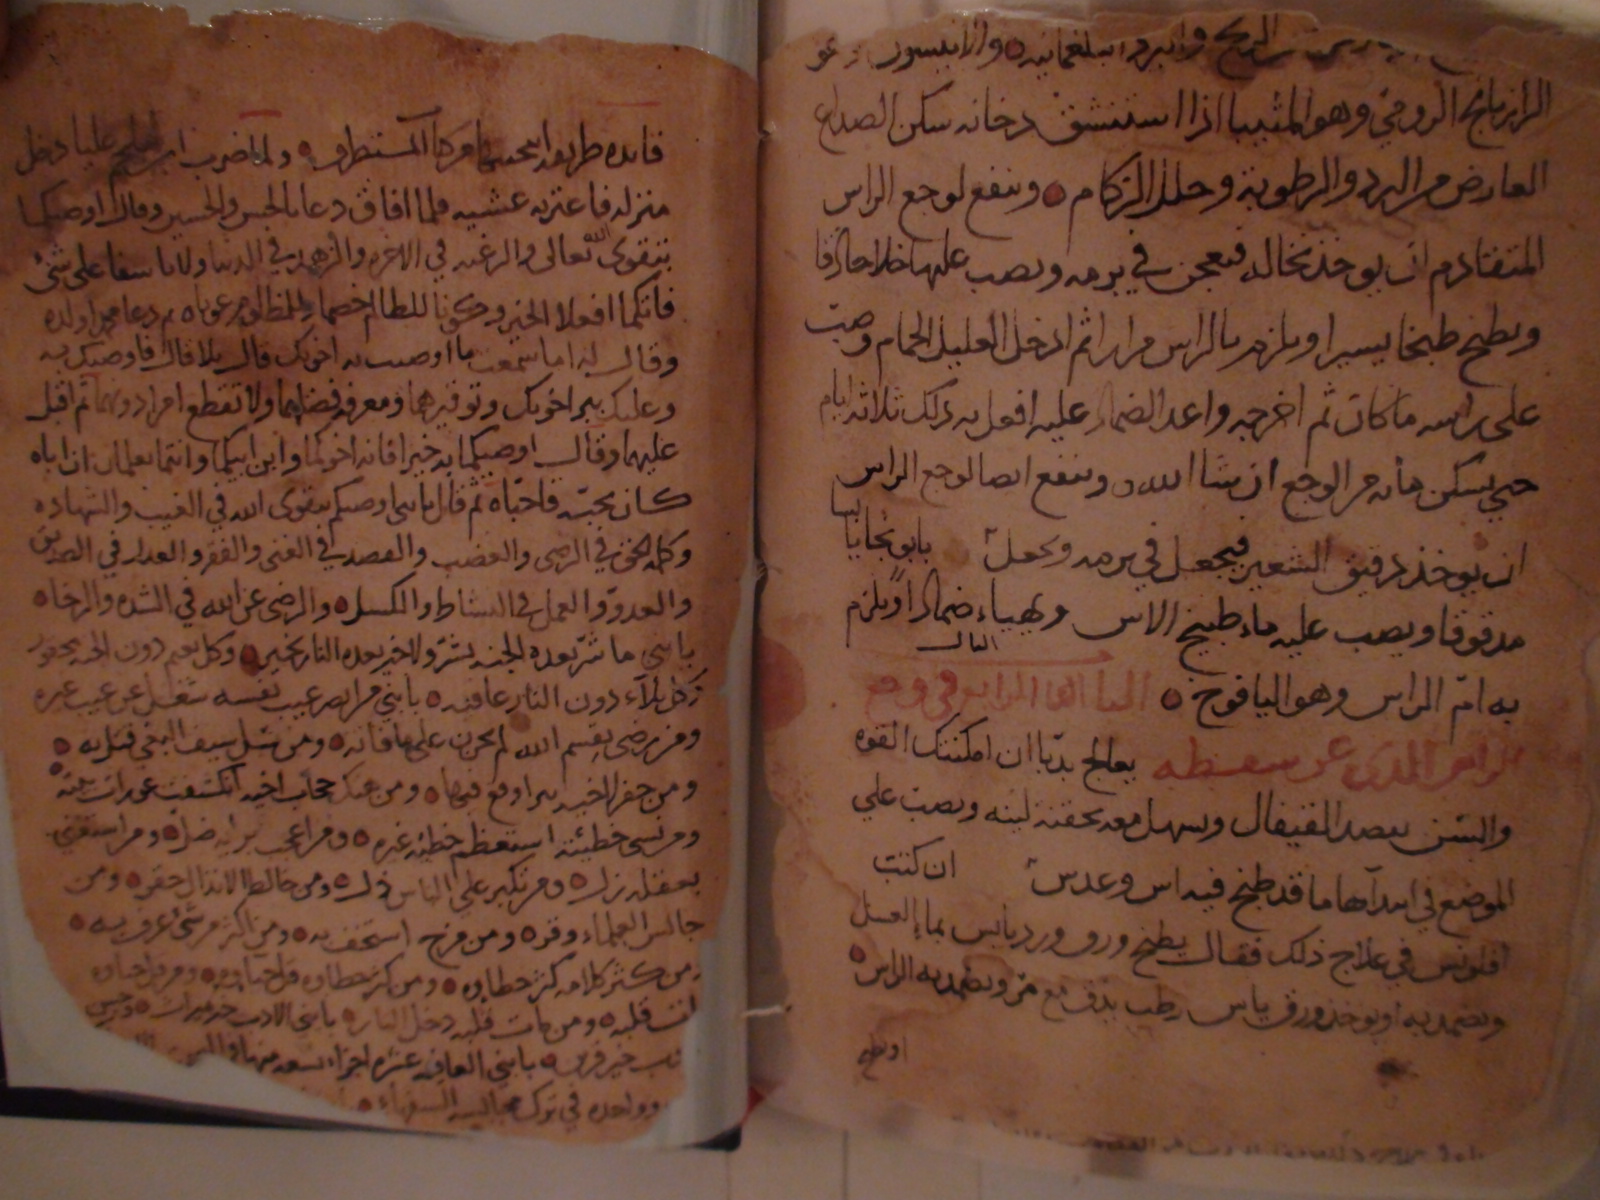 الريح والبرد والبلغمانيه والانيسون وهو
الرازيانج الرومي وهو المثيبا اذا استنشق دخانه سكن الصداع
العارض من البرد والرطوبة وحلل الزكام وينفع لوجع الراس
المتقادم ان يوخذ نخاله فيعجن في برمه ويصب عليها خلا حاذقا
ويطبخ طبخا يسيرا ويلزم بالراس مرارا ثم ادخل العليل الحمام وصب
على راسه ما كان ثم اخرجه واعد الضماد عليه افعل به ذلك ثلاثة ايام
حتى يسكن ما به من الوجع ان شا الله وينفع ايضا لوجع الراس
ان يوخذ دقيق الشعير فيجعل في برمه ويجعل بابونجا يابسا
مدقوقا ويصب عليه ماء طبيخ الاس ويهياء ضمادا ويلزم
به ام الراس وهو اليافوخ الباب الرابع في وجع
الراس الذي عن سقطه يعالج بديا ان امكنتك القوه
والسن بفصد القيفال ويسهل معه بحقنة لينه ويصب على
الموضع في ابتدآها ما قد طبخ فيه اس وعدس ان كنت
في علاج ذلك فقال يطبخ ورق ورد يابس بما العسل
ويضمد به او يوخذ ورق ياس رطب يدق مع مر ويضمد به الراس
او يطبخ
فايده طريفه ولما ضرب ابن ملجم عليا دخل
منزله فاعترته غشيه فلما افاق دعا بالحسن والحسين وقال اوصيكما
بتقوى الله تعالى والرغبه في الاخره والزهد في الدنيا ولا تاسفا على شئ
فاتكما افعلا الخير وكونا للظالم خصما وللمظلوم عونا ثم دعا محمدا ولده
وقال له اما سمعت ما اوصيت به اخويك قال بلا قال فاوصيك به
وعليك ببر اخويك وتوقيرهما ومعرفه فضلهما ولا تقطع امرا دونهما ثم اقبل
عليهما وقال اوصيكما به خيرا فانه اخوكما وابن ابيكما وانتما تعلمان ان اباه
كان يحبه فاحباه ثم قال يا بني اوصيكم بتقوى الله في الغيب والشهاده
وكلمة الحق في الرضى والغضب والقصد في الغنى والفقر والعدل في الصديق
والعدو والعمل في النشاط والكسل والرضى عن الله في الشده والرخاء
يا بني ما شر بعده الجنه بشر ولا خير بعده النار بخير وكل نعيم دون الجنه محقور
وكل بلآء دون النار عافيه يا بني من ابصر عيب نفسه شغل عن عيب غيره
ومن رضي بقسم الله لم يحزن على ما فاته ومن سل سيف البغي قتل به
ومن حفر لاخيه بيرا وقع فيها ومن هتك حجاب اخيه انكشفت عورات بيته
ومن نسى خطيئته استعظم خطيئة غيره ومن اعجب برايه ضل ومن استغنى
بعقله زل ومن تكبر على الناس ذل ومن خالط الانذال حقر ومن
جالس العلماء وقر ومن مزح استخف به ومن اكثر من شئ عرف به
ومن كثر كلامه كثر خطاوه ومن كثر خطاوه قل حياوه ومن قل حياوه
مات قلبه ومن مات قلبه دخل النار يا بني الادب خير ميراث وحسن
خير قرين يا بني العافيه عشره اجزاء تسعه منها
وواحده في ترك مجالسه السفهاء